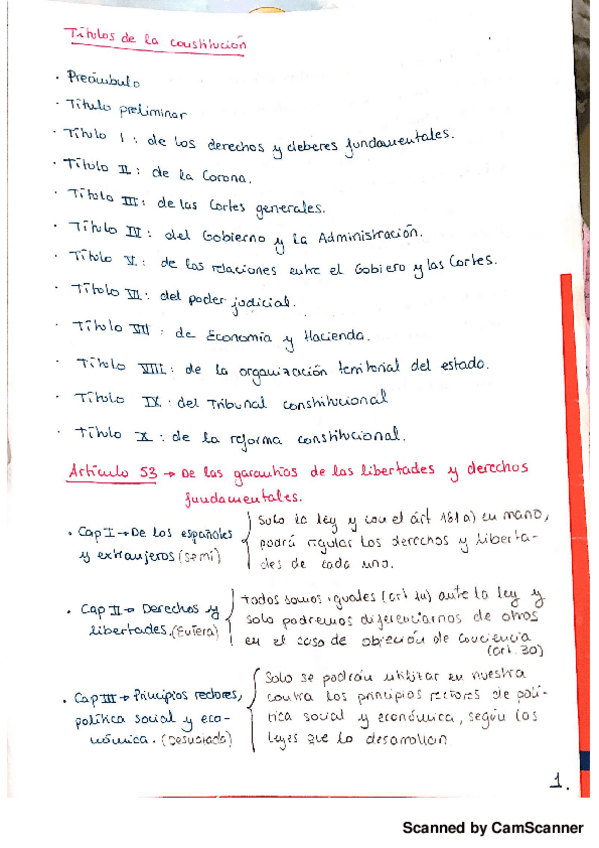 Títulos de la constitución
· Preámbulo
· Título preliminar
· Título I: de los derechos y deberes fundamentales.
· Título II: de la Corona.
· Título III: de las Cortes generales.
· Título IV: del Gobierno y la Administración.
· Título V: de las relaciones entre el Gobiero y las Cortes.
· Título VI: del poder judicial.
· Título VII: de Economía y Hacienda.
· Título VIII: de la organización territorial del estado.
· Título IX: del Tribunal constitucional
· Título X: de la reforma constitucional.
Artículo 53 → De las garantías de las libertades y derechos
fundamentales.
· Cap I → De los españoles
y extranjeros (semi)
Solo la ley y con el art 161a) en mano,
podrá regular los derechos y liberta-
des de cada uno.
· Cap II → Derechos y
libertades. (Entera)
Todos somos iguales (art 14) ante la ley y
solo podremos diferenciarnos de otros
en el caso de objeción de conciencia
(art. 30)
· Cap III → Principios rectores,
política social y eco-
nómica. (Desusiada)
Solo se podrán utilizar en nuestra
contra los principios rectores de polí-
tica social y económica, según las
leyes que lo desarrollan
1.
Scanned by CamScanner